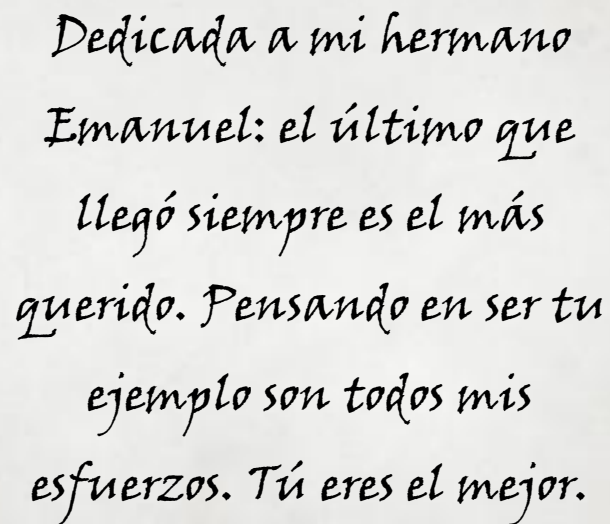 Dedicada a mi hermano
Emanuel: el último que
llegó siempre es el más
querido. Pensando en ser tu
ejemplo son todos mis
esfuerzos. Tú eres el mejor.